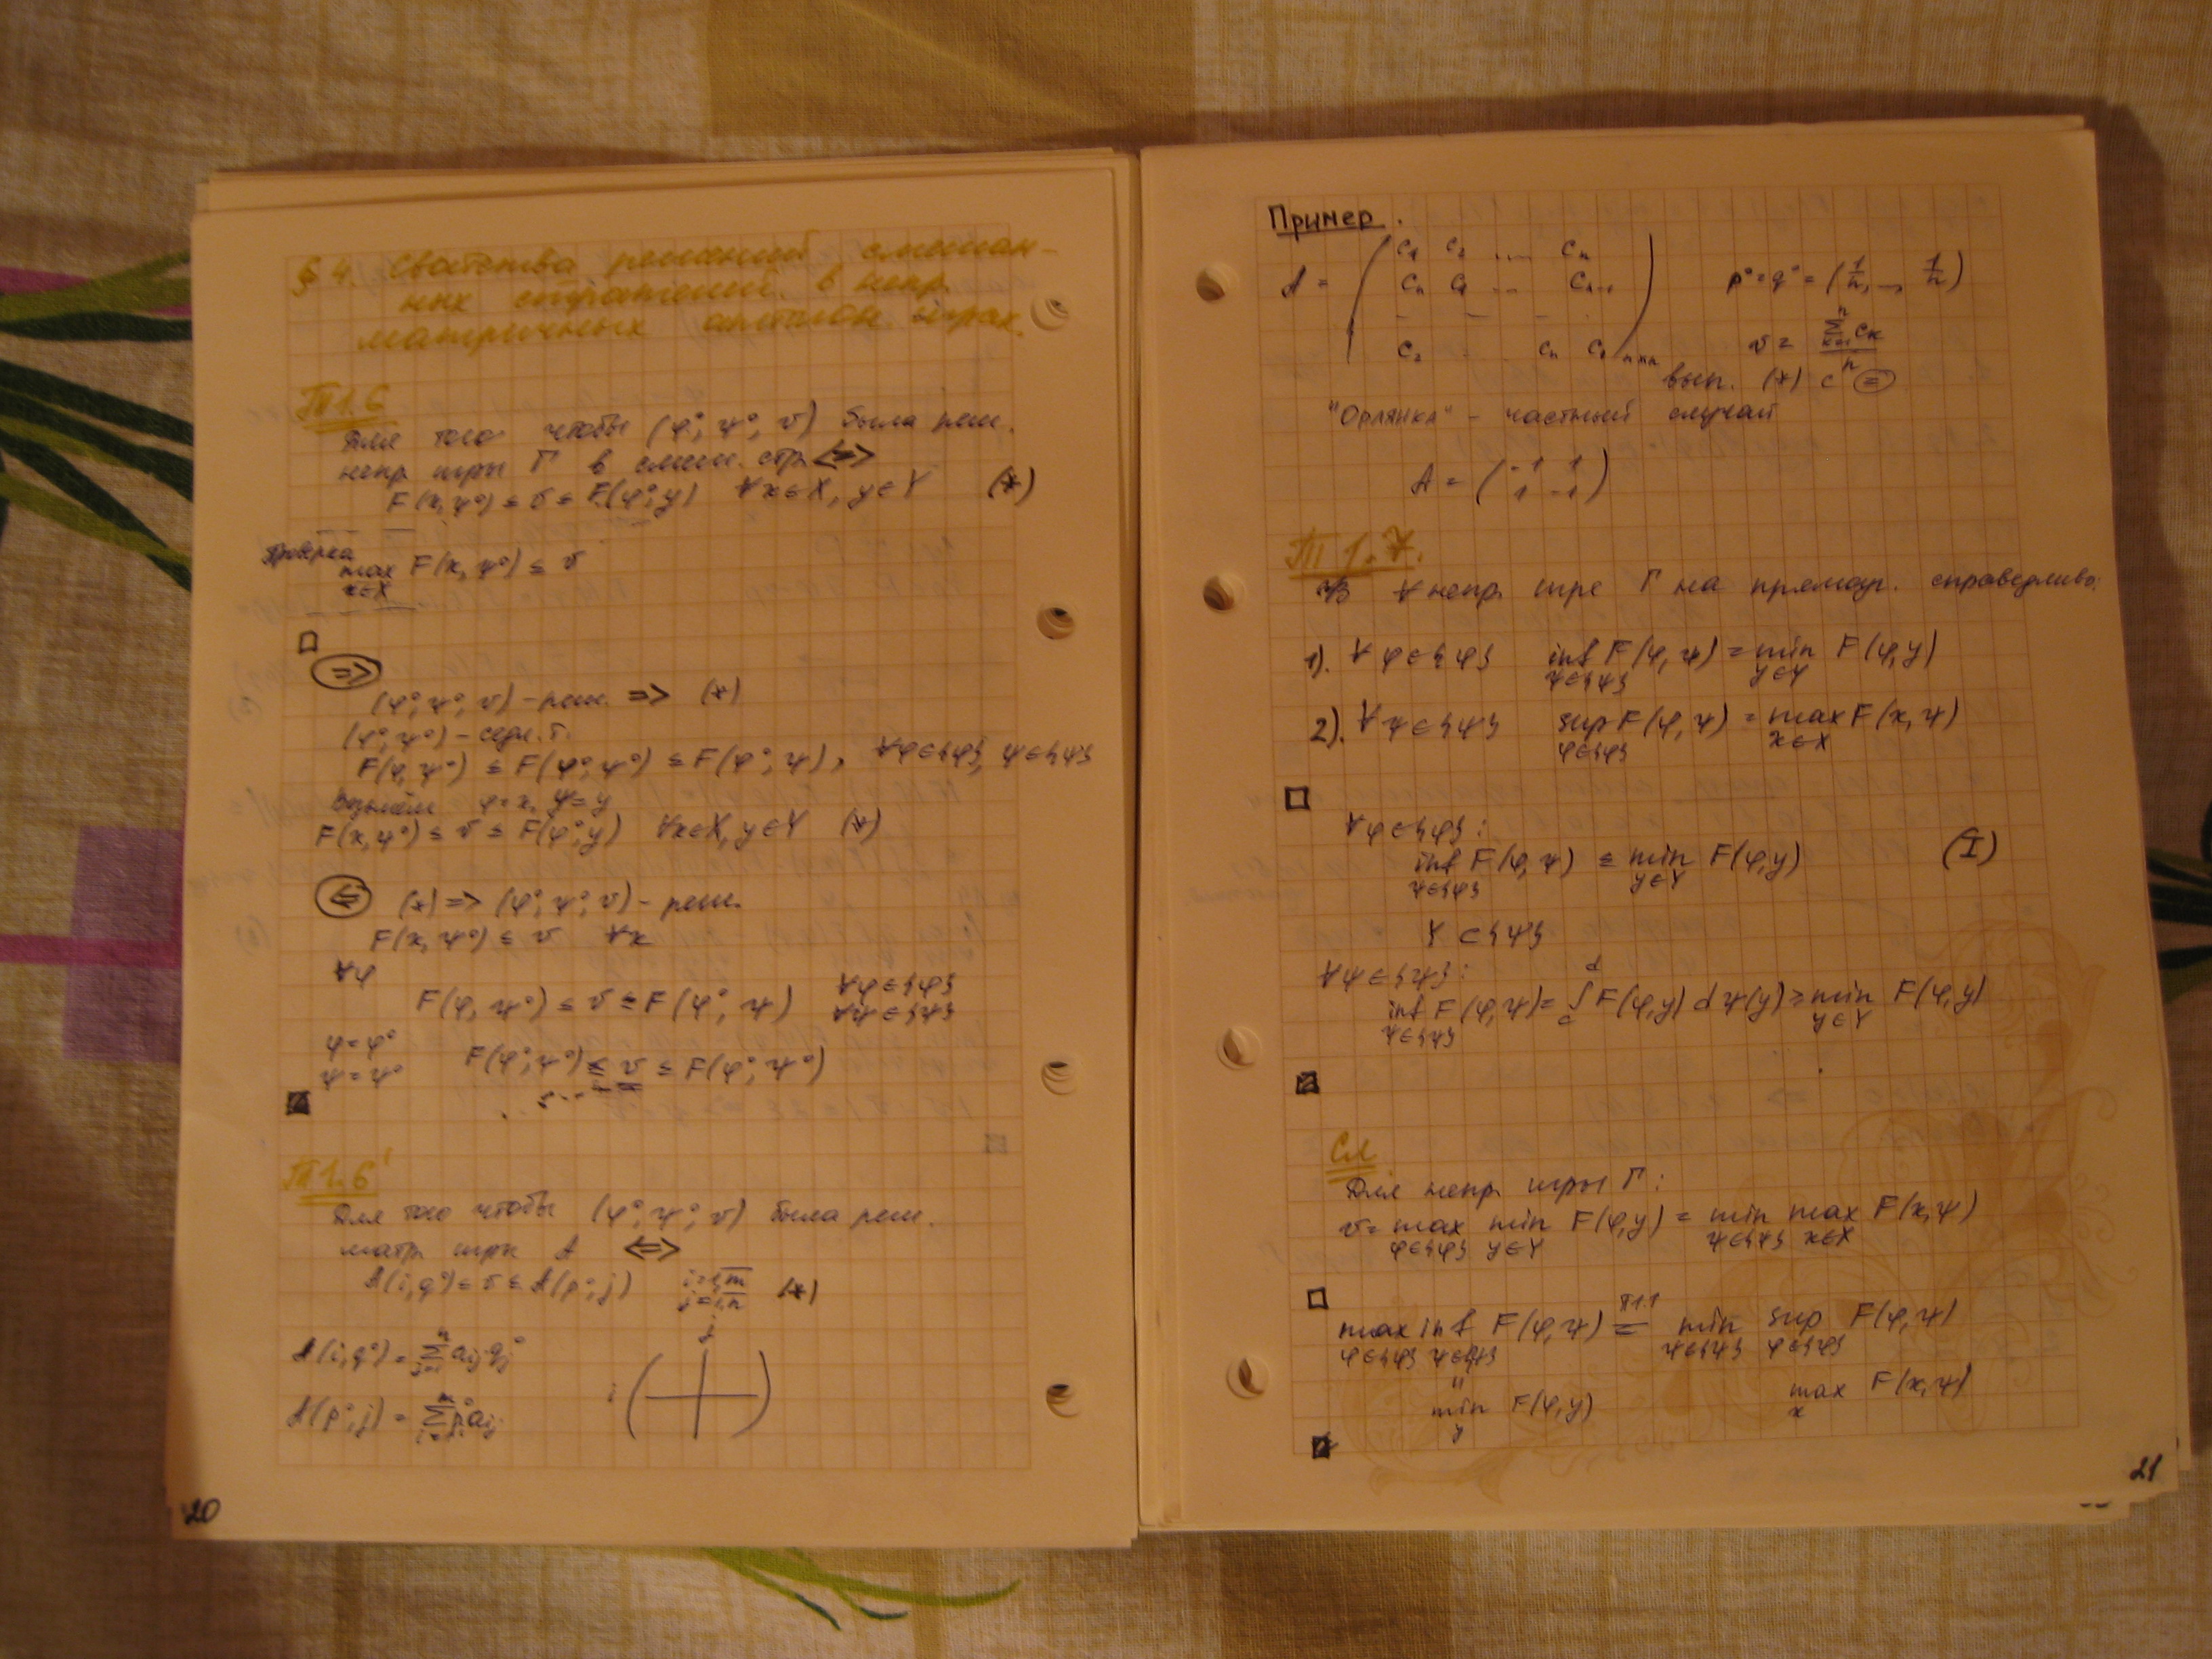 § 4. Свойства решений смешан-
ных стратегий в непр.
матричных антагон. играх.
Т 1.6
Для того чтобы (φ°, ψ°, v) была реш.
непр игры Γ в смеш. стр <=>
F(x, ψ°) ≤ v ≤ F(φ°, y) ∀x∈X, y∈Y (*)
Проверка
max F(x, ψ°) ≤ v
x∈X
□
(=>)
(φ°, ψ°, v) - реш. => (*)
(φ°, ψ°) - седл. т.
F(φ, ψ°) ≤ F(φ°, ψ°) ≤ F(φ°, ψ), ∀φ∈{φ}, ψ∈{ψ}
Возьмём φ=x, ψ=y
F(x, ψ°) ≤ v ≤ F(φ°, y) ∀x∈X, y∈Y (*)
(<=) (*) => (φ°, ψ°, v) - реш.
F(x, ψ°) ≤ v ∀x
∀φ
F(φ, ψ°) ≤ v ≤ F(φ°, ψ) ∀φ∈{φ}
∀ψ∈{ψ}
φ=φ°
ψ=ψ° F(φ°, ψ°) ≤ v ≤ F(φ°, ψ°)
■
Т 1.6'
Для того чтобы (φ°, ψ°, v) была реш.
матр игры A <=>
A(i, q°) ≤ v ≤ A(p°, j) i=1,m
j=1,n (*)
A(i, q°) = Σ aij qj°
j
A(p°, j) = Σ pi° aij
i
20
Пример.
A = ( c1 c2 .... cn
cn c1 ... cn-1
c2 . . cn c1 )n×n
p°=q°=(1/n, ..., 1/n)
v = Σ ck / n
вып. (*) с (=)
"Орлянка" - частный случай
A = ( -1 1
1 -1 )
Т 1.7.
В ∀ непр. игре Γ на прямоуг. справедливо:
1). ∀ φ∈{φ} inf F(φ, ψ) = min F(φ, y)
ψ∈{ψ} y∈Y
2). ∀ ψ∈{ψ} sup F(φ, ψ) = max F(x, ψ)
φ∈{φ} x∈X
□
∀φ∈{φ}:
inf F(φ, ψ) ≤ min F(φ, y) (I)
ψ∈{ψ} y∈Y
Y ⊂ {ψ}
∀ψ∈{ψ}:
inf F(φ, ψ) = ∫ F(φ, y) dψ(y) ≥ min F(φ, y)
ψ∈{ψ} c d y∈Y
■
Сл
Для непр. игры Γ:
v = max min F(φ, y) = min max F(x, ψ)
φ∈{φ} y∈Y ψ∈{ψ} x∈X
□
max inf F(φ, ψ) =^{Т1.1} min sup F(φ, ψ)
φ∈{φ} ψ∈{ψ} ψ∈{ψ} φ∈{φ}
"
min F(φ, y) max F(x, ψ)
y x
■
21